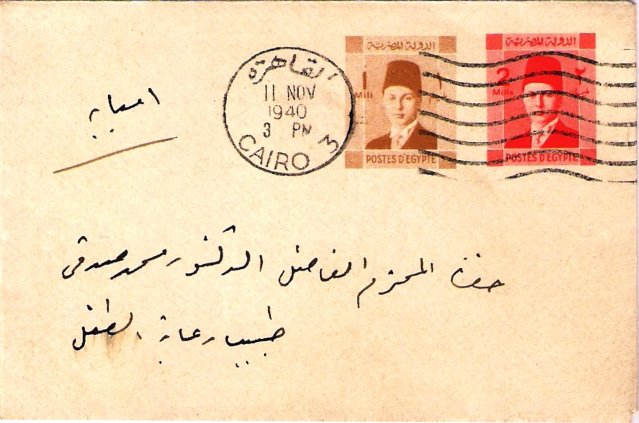 القاهرة
11 NOV
1940
3 PM
CAIRO 3
الدولة المصرية
1
Mill
POSTES D'EGYPTE
الدولة المصرية
2 ٢
Mills
POSTES D'EGYPTE
امبابه
حضرة المحترم الفاضل الدكتور محمد صدقى
طبيب رعاية الطفل